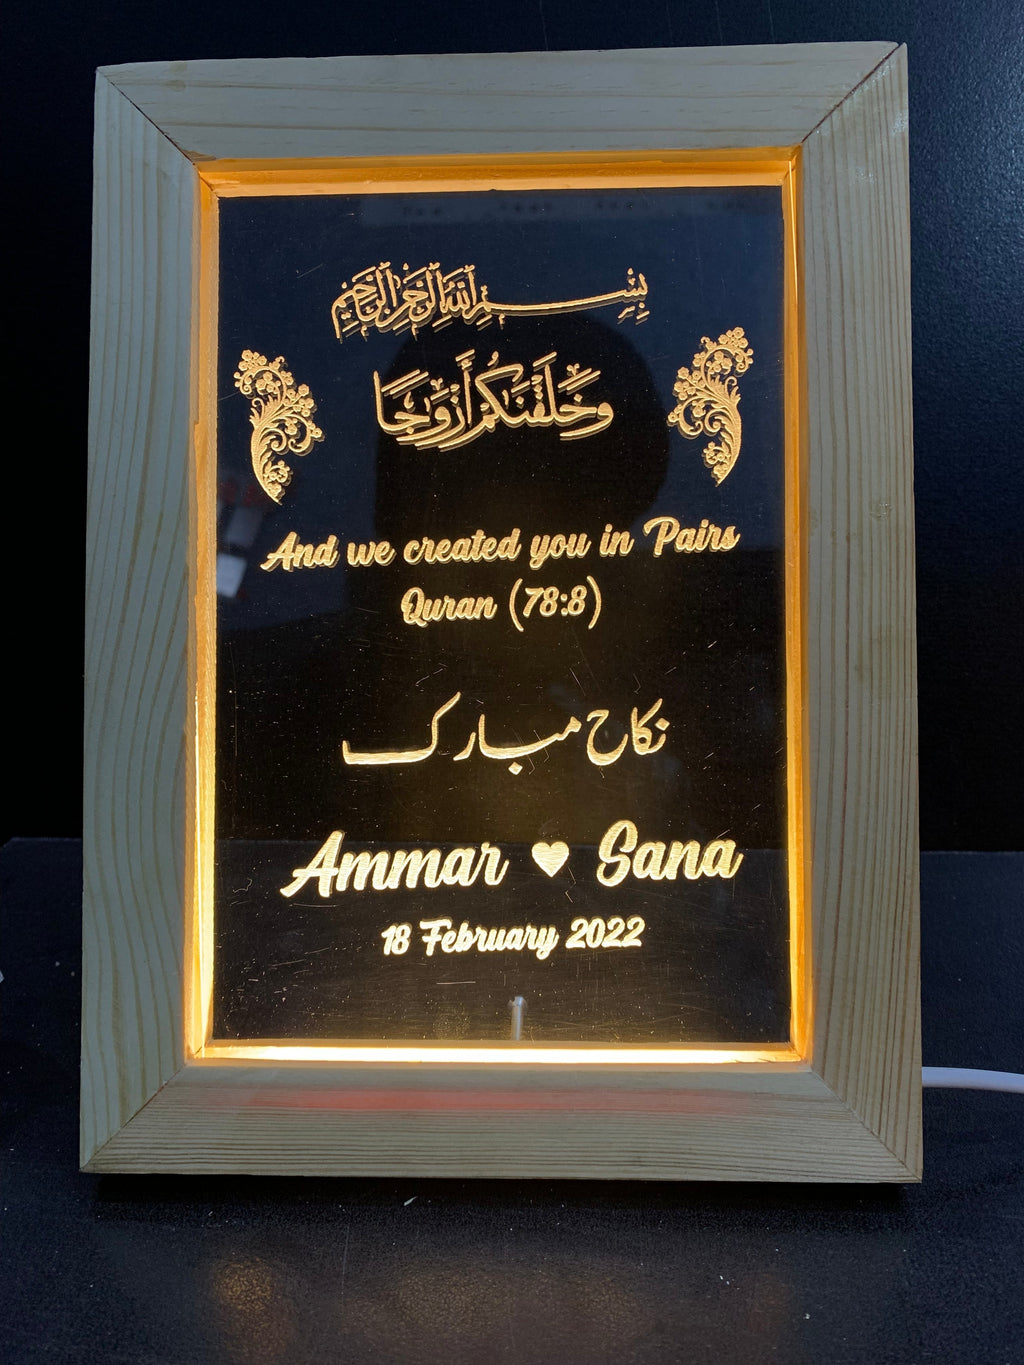 بِسْمِ اللَّهِ الرَّحْمَٰنِ الرَّحِيمِ
وَخَلَقْنَٰكُمْ أَزْوَٰجًا
And we created you in Pairs
Quran (78:8)
نکاح مبارک
Ammar ♥ Sana
18 February 2022